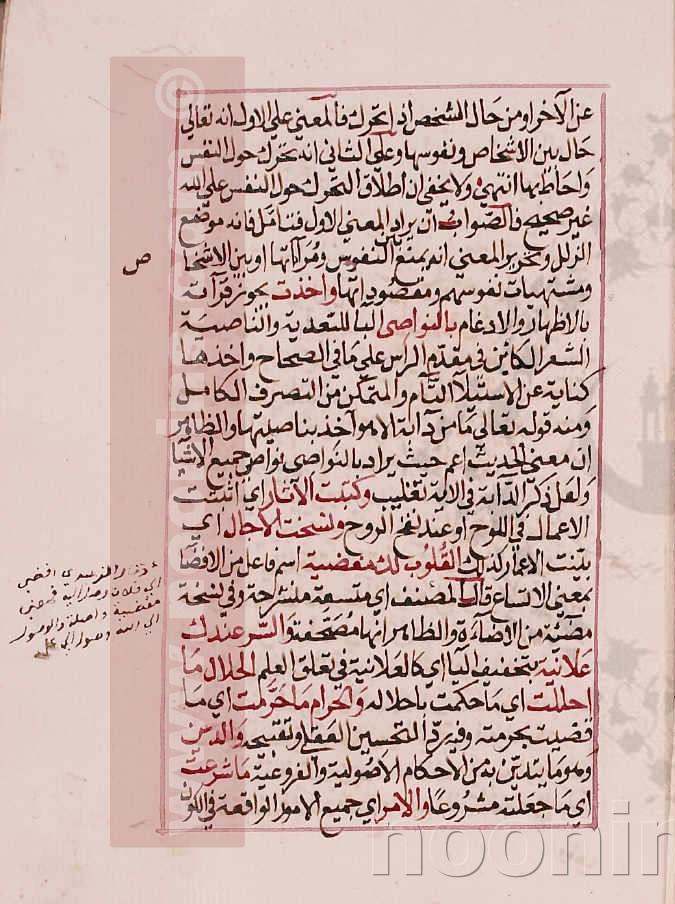 عن الآخر او من حال الشخص اذا تحرك فالمعني علي الاول انه تعالي
حال بين الاشخاص ونفوسها وعلي الثاني انه تحرك حول النفس
واحاط بها انتهي ولا يخفي ان اطلاق التحول حول النفس علي الله
غير صحيح فالصواب ان يراد المعني الاول فتامل فانه موضع
الزلل وتحرير المعني انه يمنع بين النفوس ومراداتها او بين الاشخا
ومشتهيات نفوسهم ومقصوداتها واخذت يجوز قرآته
ص
بالاظهار والادغام بالنواصي البا للتعدية والناصية
الشعر الكائن في مقدم الراس علي ما في الصحاح واخذها
كناية عن الاستيلآ التام والمتمكن من التصرف الكامل
ومنه قوله تعالي ما من دابة الا هو آخذ بناصيتها والظاهر
ان معني الحديث اعم حيث يراد بالنواصي نواصي جميع الاشيآ
ولعل ذكر الدابة في الاية تغليب وكتبت الآثار اي اثبتت
الاعمال في اللوح او عند نفخ الروح ونسخت الآجال اي
بينت الاعمار لذلك القلوب لك مفضية اسم فاعل من الافضا
بمعني الاتساع قال المصنف اي متسعة منشرحة وفي نسخة
مضئة من الاضآءة والظاهر انها مصحفة والسر عندك
علانية بتخفيف اليا اي كالعلانية في تعلق العلم الحلال ما
احللت اي ما حكمت باحلاله والحرام ما حرمت اي ما
قضيت بحرمته وفيه رد التحسين العقلي وتقبيحه والدين
وهو ما يتدين به من الاحكام الاصولية والفروعية ما شرعت
اي ما جعلته مشروعا والامر اي جميع الامور الواقعة في الكون
افضي
الي فلان وصل اليه فمعني
مفضية واصلة والوصول
الي الله وصول الي
noonir